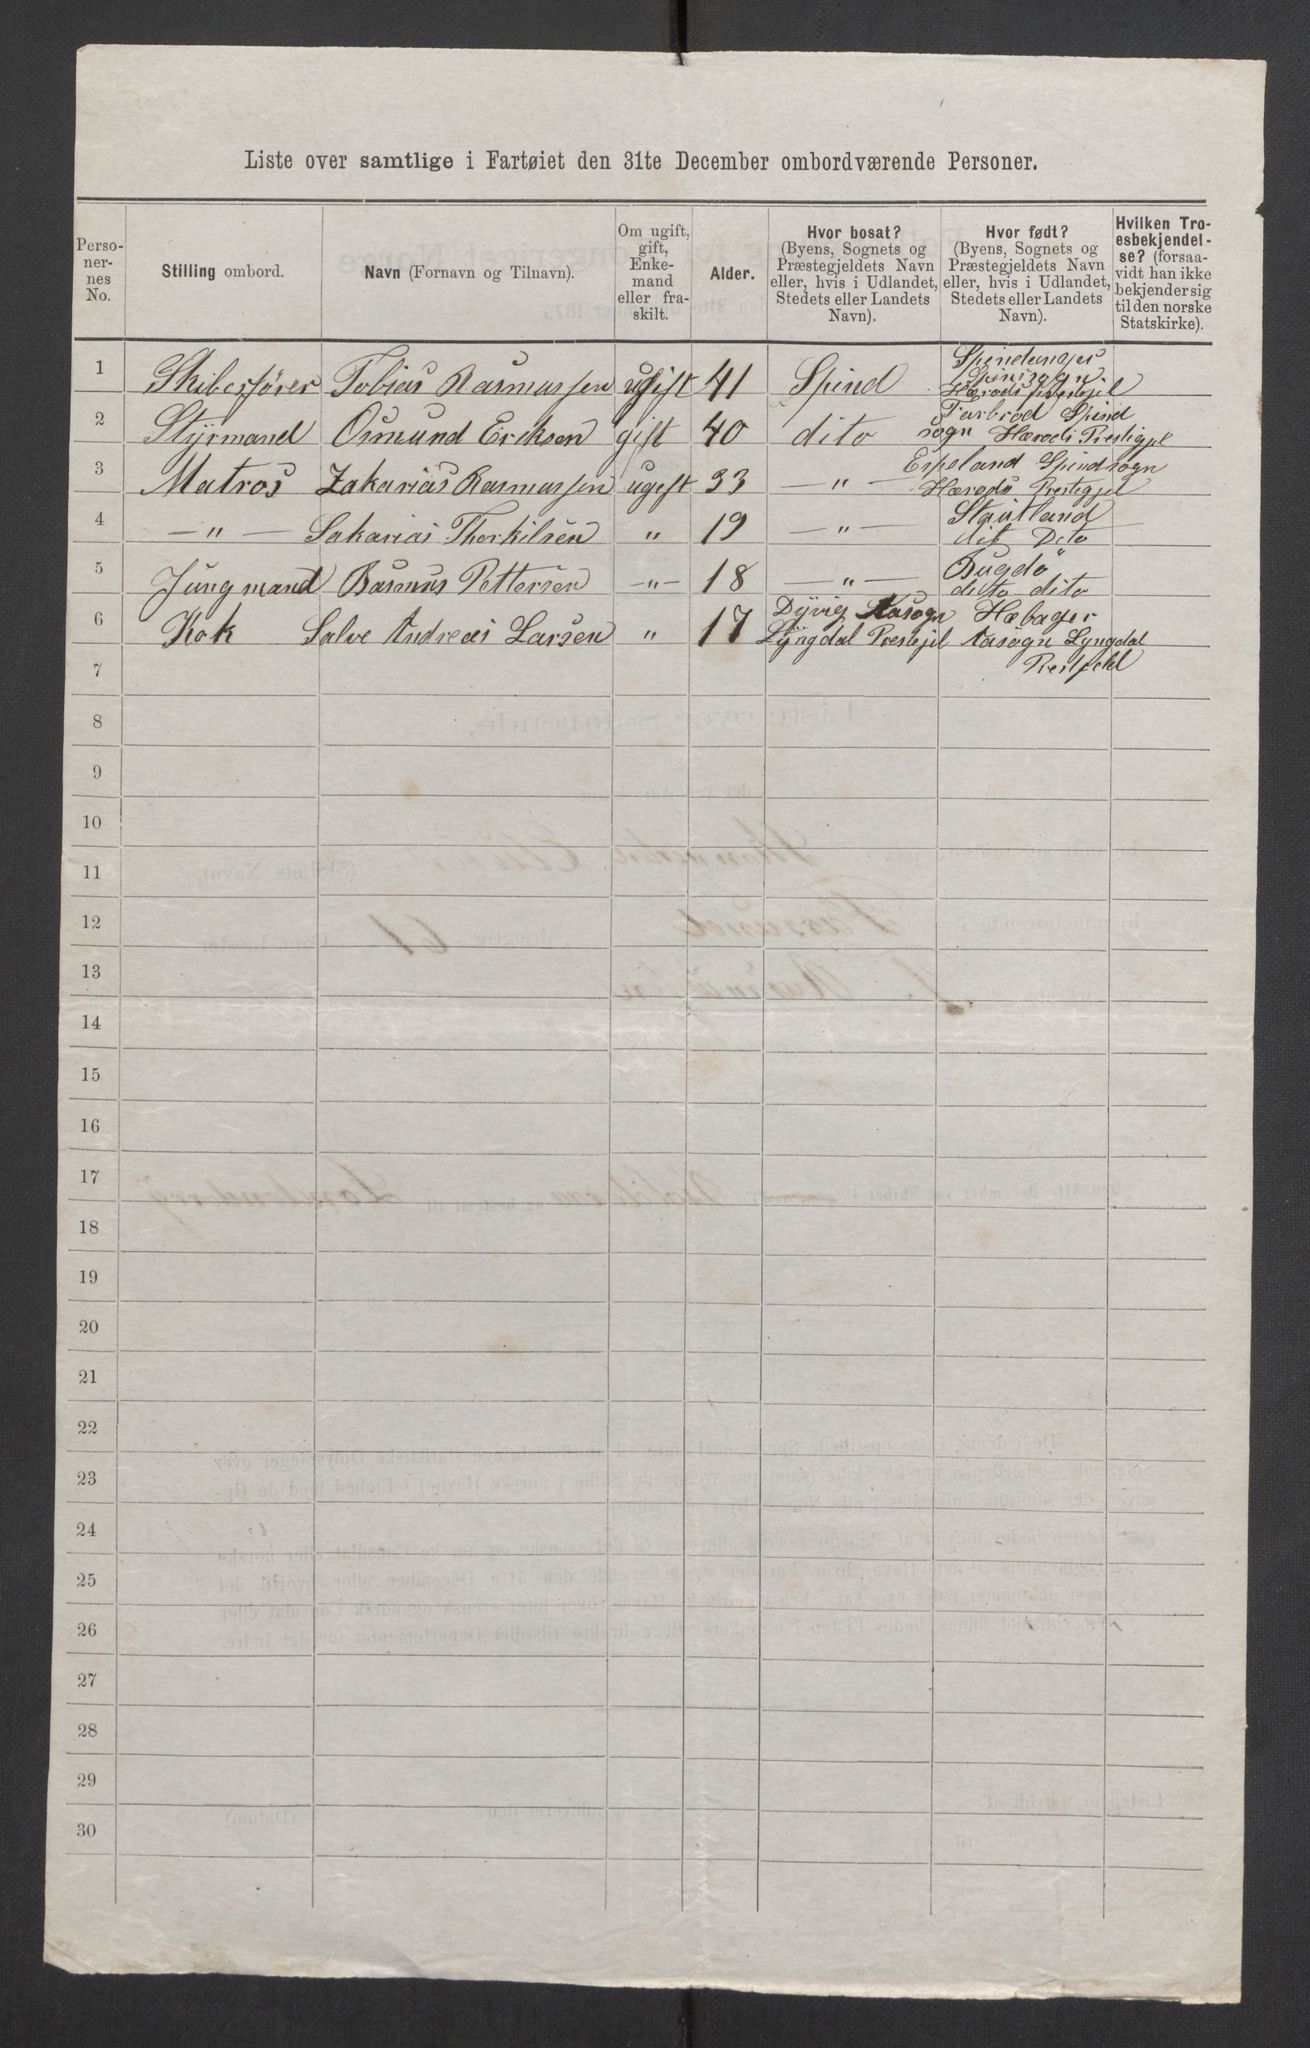 Liste over samtlige i Fartøiet den 31te December ombordværende Personer.
Perso-
ner-
nes
No.
Stilling ombord.
Navn (Fornavn og Tilnavn).
Om ugift,
gift,
Enke-
mand
eller fra-
skilt.
Alder.
Hvor bosat?
(Byens, Sognets og
Præstegjeldets Navn
eller, hvis i Udlandet,
Stedets eller Landets
Navn).
Hvor født?
(Byens, Sognets og
Præstegjeldets Navn
eller, hvis i Udlandet,
Stedets eller Landets
Navn).
Hvilken Tro-
esbekjendel-
se? (forsaa-
vidt han ikke
bekjender sig
til den norske
Statskirke).
1 Skibesfører Tobias Rasmussen ugift 41 Spind Spindanges
Herods
2 Styrmand Osmund Eriksen gift 40 dito Farbrod Spind
sogn Herods Prestigjel
3 Matros Zakarias Rasmussen ugift 33 —"— Espeland Spindsogn
Herods Prestegjel
4 —"— Sakarias Therkilsen " 19 —"— Stautland
dit Dito
5 Jungmand Rasmus Pettersen —"— 18 —"— Bugdö
ditto dito
6 Kok Salve Andreas Larsen " 17 Dyvig Aasogn Hæbager
Lyngdal Prestejel Aasogn Lyngdal
7
8
9
10
11
12
13
14
15
16
17
18
19
20
21
22
23
24
25
26
27
28
29
30